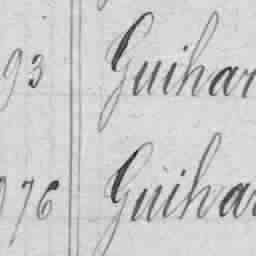 93 Guihar
976 Guihar